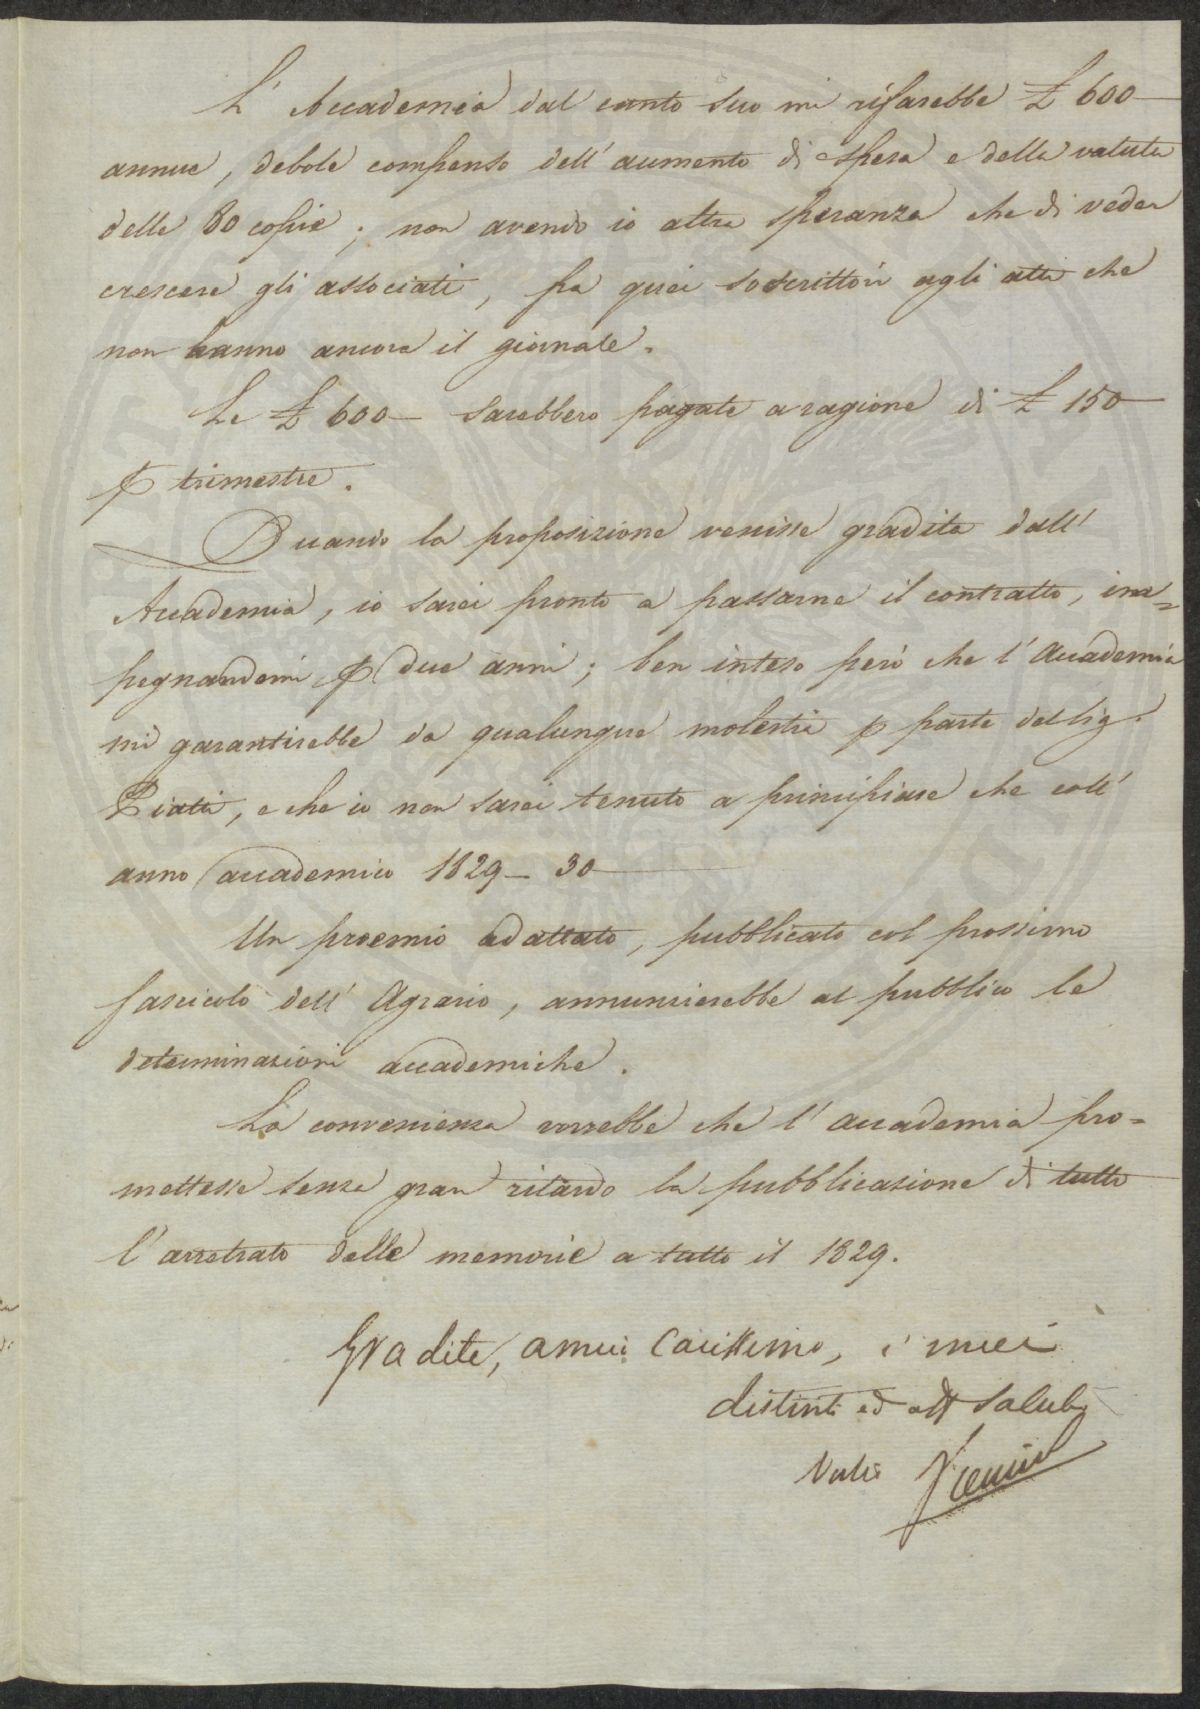 L'Accademia dal canto suo mi rifarebbe £ 600—
annue, debole compenso dell'aumento di spesa e della valuta
delle 80 copie; non avendo io altra speranza che di veder
crescere gli associati, fra quei soscrittori agli atti che
non hanno ancora il giornale.
Le £ 600— sarebbero pagate a ragione di £ 150—
p trimestre.
Quando la proposizione venisse gradita dall'
Accademia, io sarei pronto a passarne il contratto, im=
pegnandomi p due anni; ben inteso però che l'Accademia
mi garantirebbe da qualunque molestia p parte del Sig.
Piatti, e che io non sarei tenuto a principiare che coll'
anno accademico 1829—30—
Un proemio adattato, pubblicato col prossimo
fascicolo dell'Agrario, annunzierebbe al pubblico le
determinazioni accademiche.
La convenienza vorrebbe che l'accademia pro=
mettesse senza gran ritardo la pubblicazione di tutto
l'arretrato delle memorie a tutto il 1829.
Gradite, amici Carissimo, i miei
distinti ed aff saluti